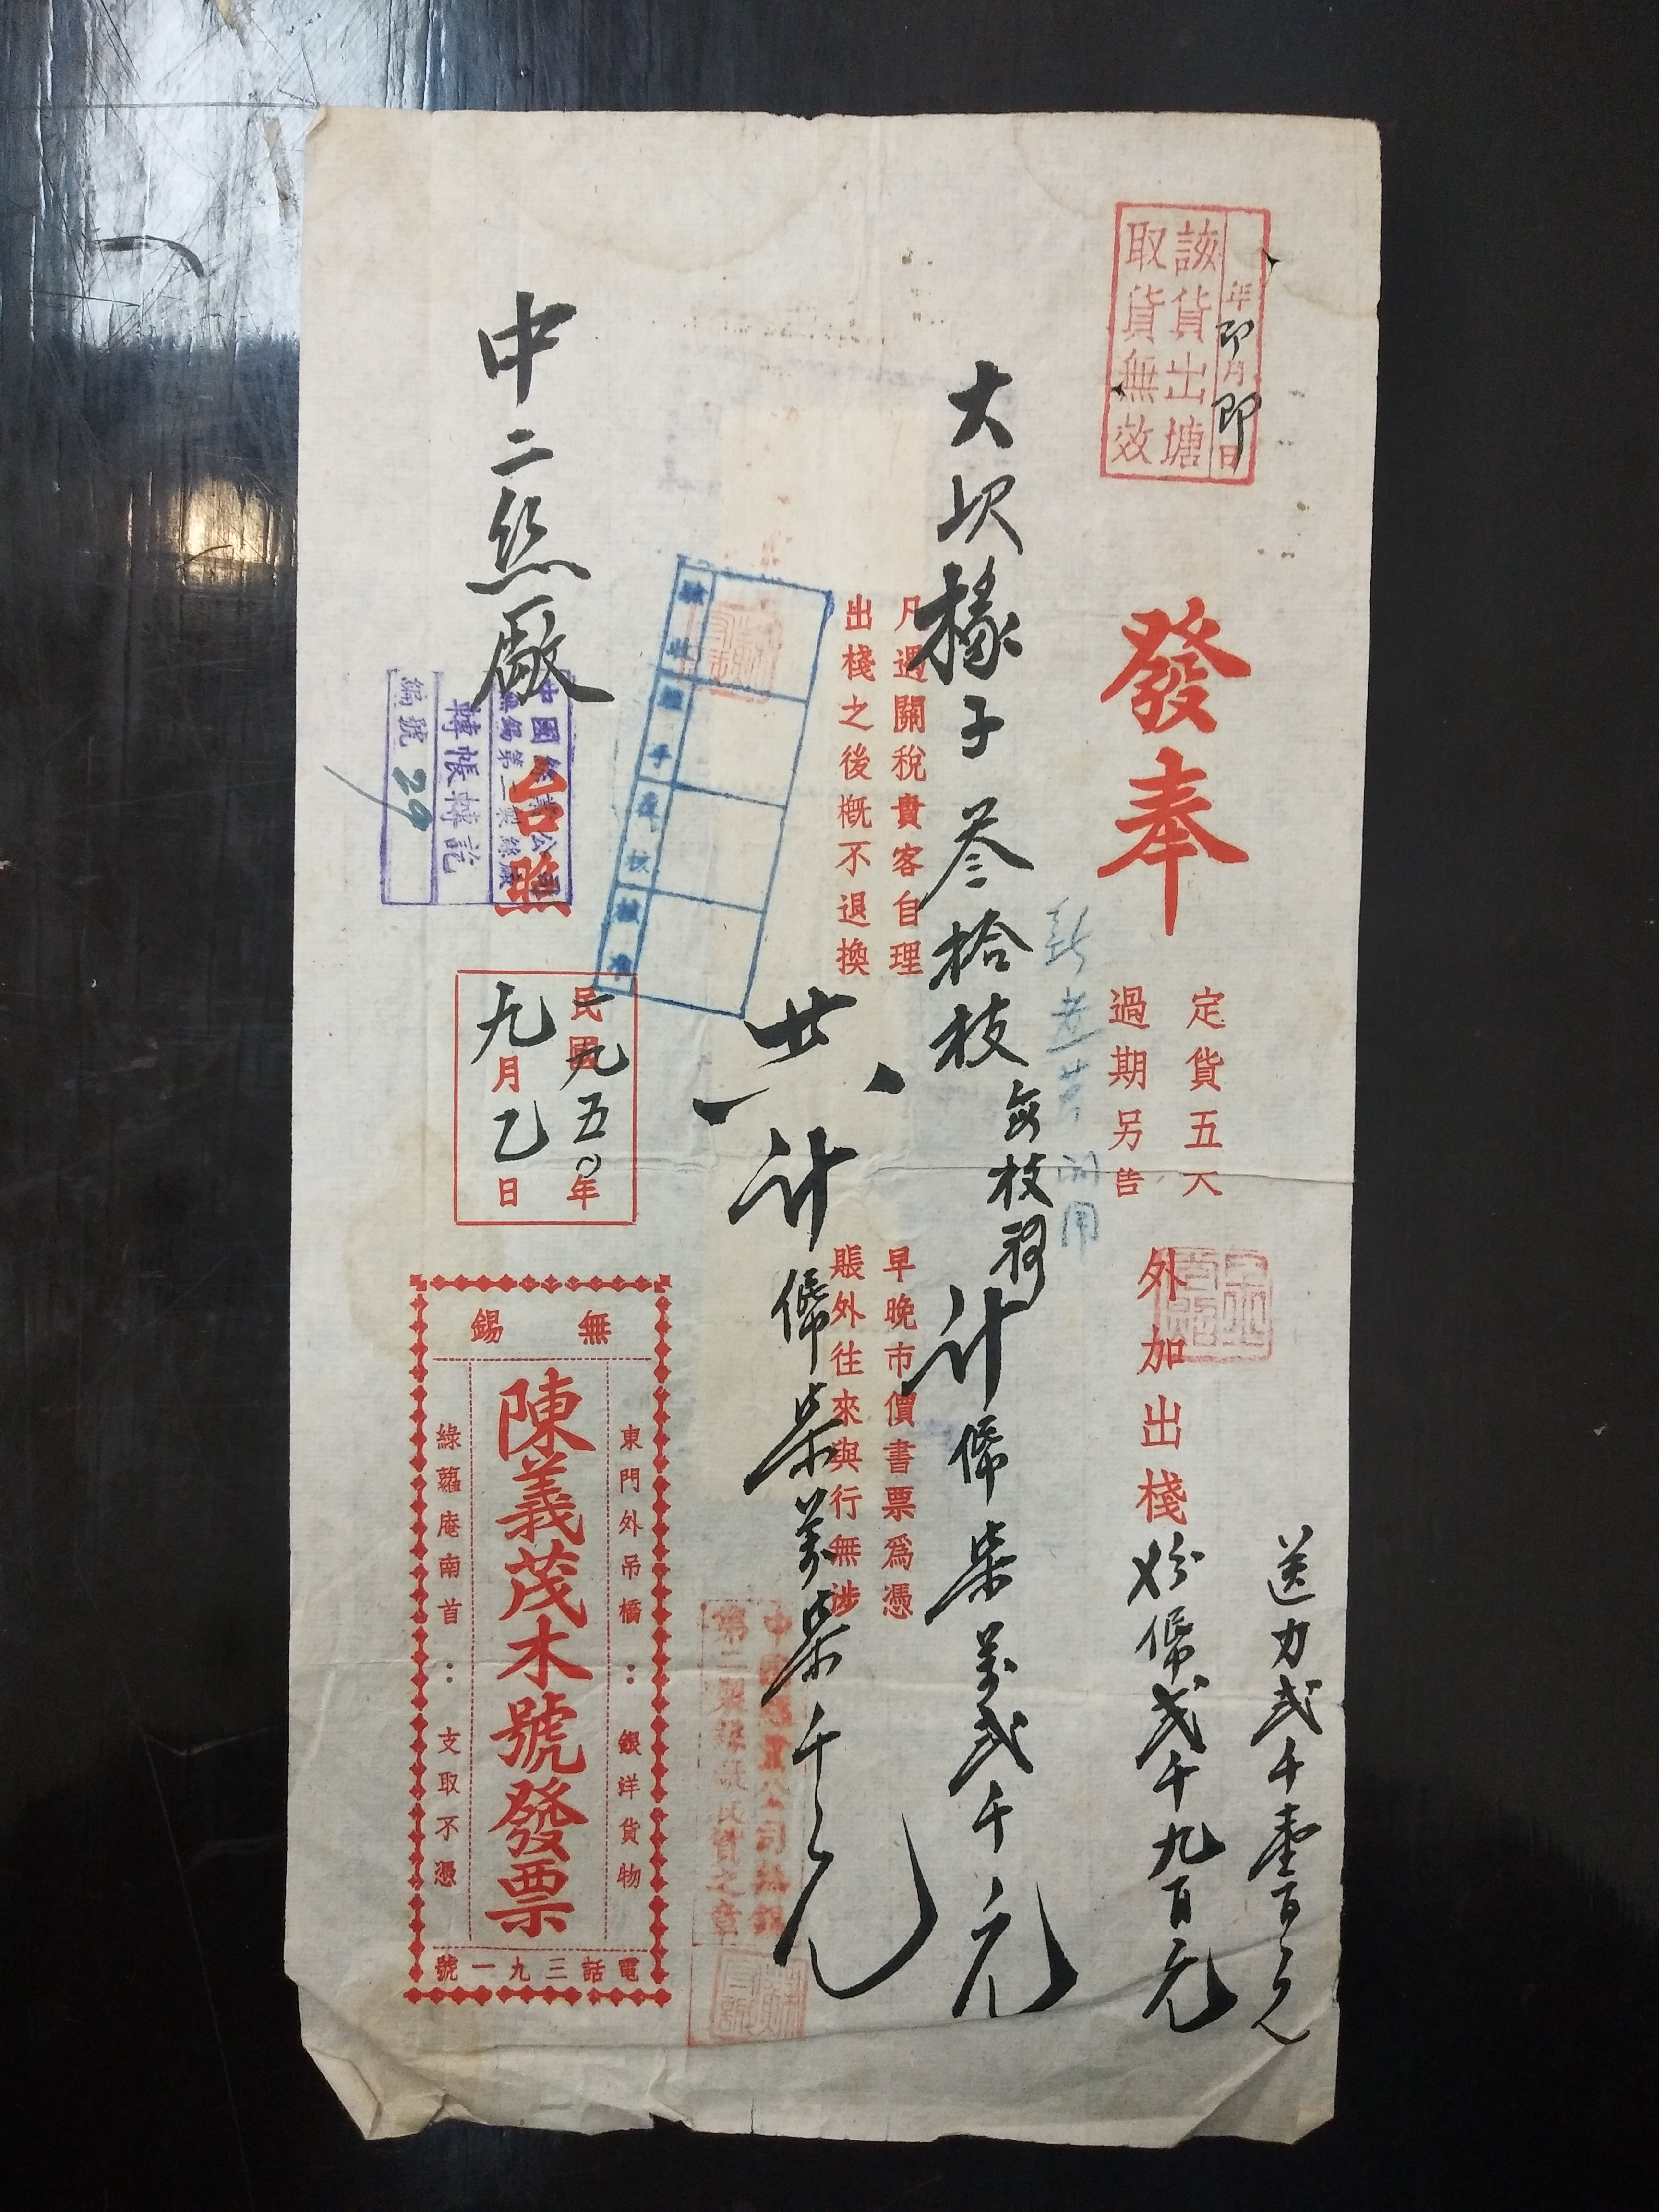 年即月即日
該貨出塘
取貨無效
發奉
定貨五天
過期另告
外加出棧
力幣弍千九百元
送力弍千壹百元
大坎椽子叁拾枝每枝
計幣柒萬弍千元
凡遇關稅貴客自理
出棧之後概不退換
早晚市價書票爲憑
賬外往來與行無涉
共計幣柒萬柒千元
中二絲廠
台照
中國絲業公司
無錫第二製絲廠
轉帳轉訖
編號 29
民國一九五〇年
九月乙日
中國蠶絲公司無錫
第二製絲廠收貨之章
無錫
東門外吊橋：銀洋貨物
陳義茂木號發票
綠蘿庵南首：支取不憑
電話三九一號